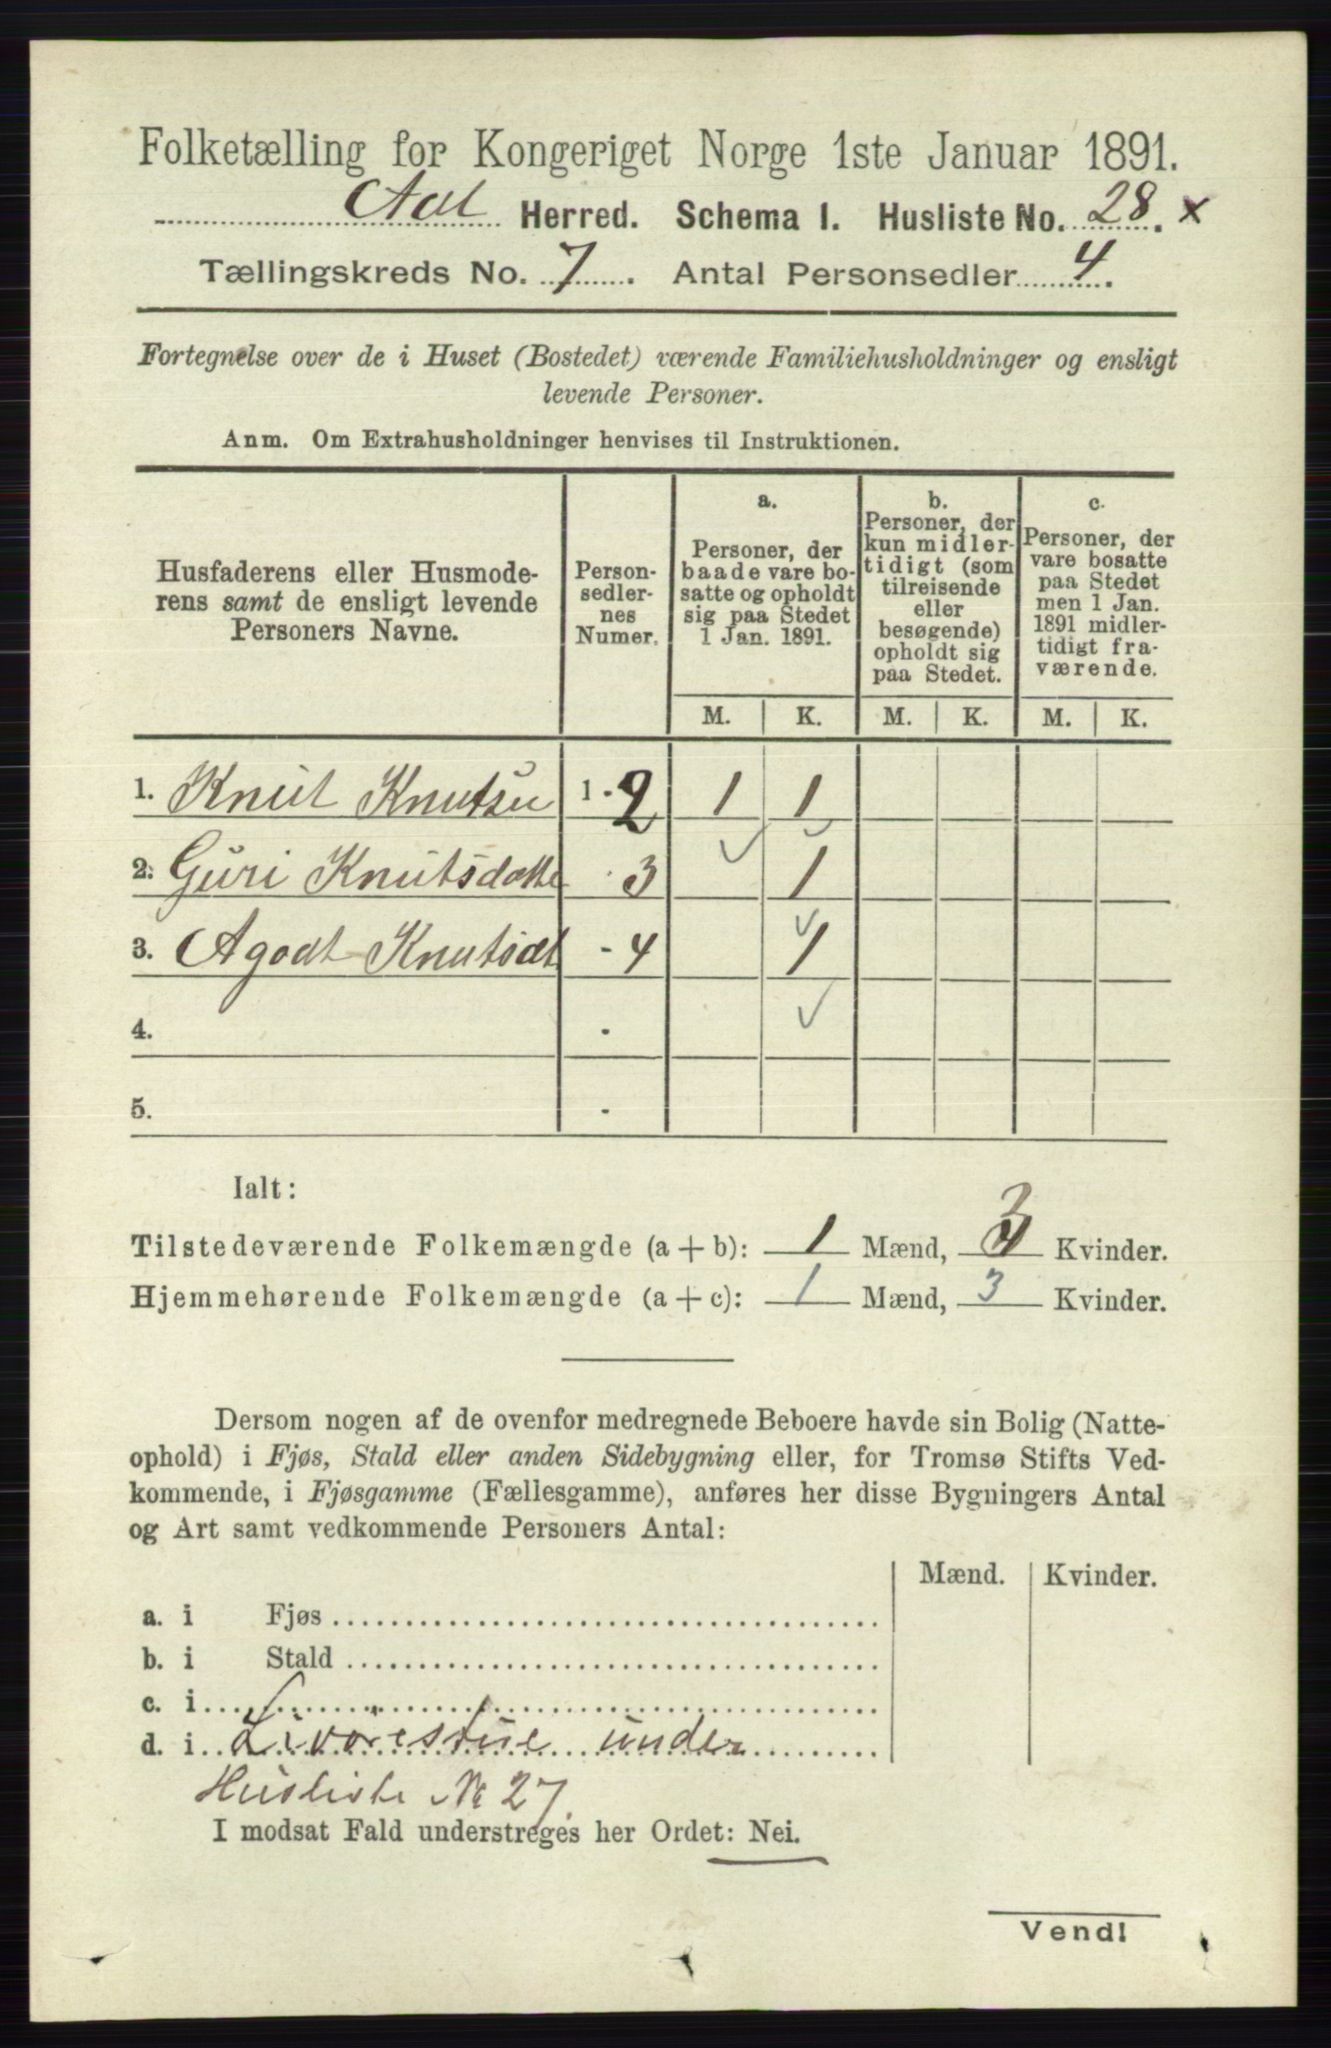 Folketælling for Kongeriget Norge 1ste Januar 1891.
Aal Herred. Schema 1. Husliste No. 28. x
Tællingskreds No. 7. Antal Personsedler 4.
Fortegnelse over de i Huset (Bostedet) værende Familiehusholdninger og ensligt
levende Personer.
Anm. Om Extrahusholdninger henvises til Instruktionen.
Husfaderens eller Husmode-
rens samt de ensligt levende
Personers Navne.
Person-
sedler-
nes
Numer.
a.
Personer, der
baade vare bo-
satte og opholdt
sig paa Stedet
1 Jan. 1891.
b.
Personer, der
kun midler-
tidigt (som
tilreisende
eller
besøgende)
opholdt sig
paa Stedet.
c.
Personer, der
vare bosatte
paa Stedet
men 1 Jan.
1891 midler-
tidigt fra-
værende.
M. K. M. K. M. K.
1. Knut Knutsen 1 - 2 1 1
2. Guri Knutsdatte - 3 1
3. Agodt Knutsdt - 4 1
4. -
5. -
Ialt:
3
Tilstedeværende Folkemængde (a + b): 1 Mænd, 4 Kvinder.
Hjemmehørende Folkemængde (a + c): 1 Mænd, 3 Kvinder.
Dersom nogen af de ovenfor medregnede Beboere havde sin Bolig (Natte-
ophold) i Fjøs, Stald eller anden Sidebygning eller, for Tromsø Stifts Ved-
kommende, i Fjøsgamme (Fællesgamme), anføres her disse Bygningers Antal
og Art samt vedkommende Personers Antal:
Mænd. Kvinder.
a. i Fjøs
b. i Stald
c. i
d. i Livørestue under
Husliste No 27.
I modsat Fald understreges her Ordet: Nei.
Vend!